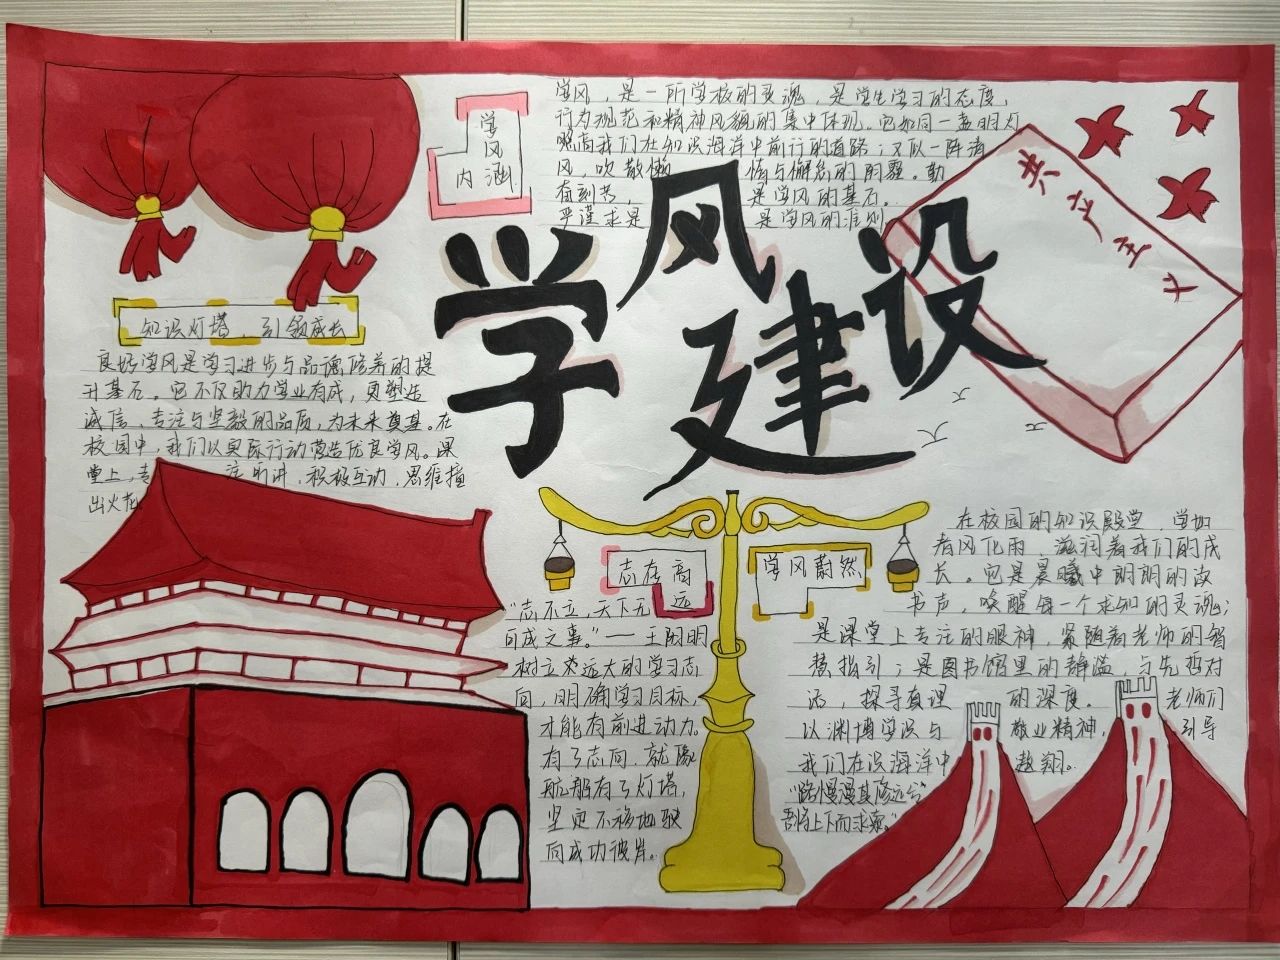 学风建设
学
风
内涵
学风，是一所学校的灵魂，是学生学习的态度、
行为规范和精神风貌的集中体现。它如同一盏明灯
照亮我们在知识海洋中前行的道路；又似一阵清
风，吹散懒惰与懈怠的阴霾。勤
奋刻苦，是学风的基石。
严谨求是是学风的准则
共产主义
知识灯塔，引领成长
良好学风是学习进步与品德修养的提
升基石。它不仅助力学业有成，更塑造
诚信、专注与坚毅的品质，为未来奠基。在
校园中，我们以实际行动营造优良学风。课
堂上，专注听讲，积极互动，思维撞
出火花
志在高
远
"志不立，天下无
可成之事。"——王阳明
树立远大的学习志
向，明确学习目标，
才能有前进动力。
有了志向，就像
航船有了灯塔，
坚定不移地驶
向成功彼岸。
学风蔚然
在校园的知识殿堂，学如
春风化雨，滋润着我们的成
长。它是晨曦中朗朗的读
书声，唤醒每一个求知的灵魂；
是课堂上专注的眼神，紧随着老师的智
慧指引；是图书馆里的静谧，与先哲对
话，探寻真理的深度。老师们
以渊博学识与敬业精神，引导
我们在识海洋中遨翔。
"路慢漫其修远兮
吾将上下而求索。"